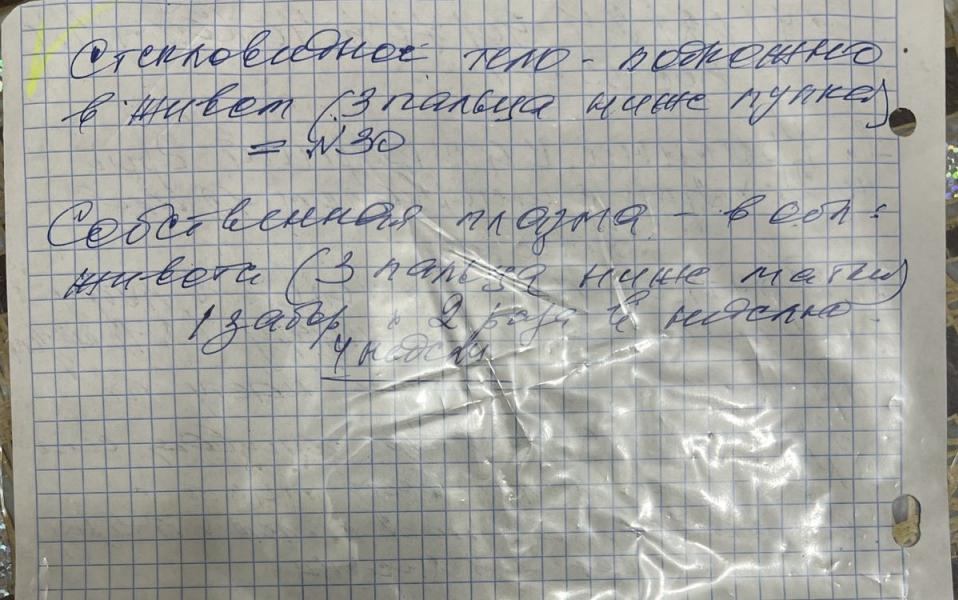 Стекловидное тело - подкожно
в живот (3 пальца ниже пупка)
= N30
Собственная плазма - в обл.
живота (3 пальца ниже матки)
1 забор 2 раза в неделю
4 недели